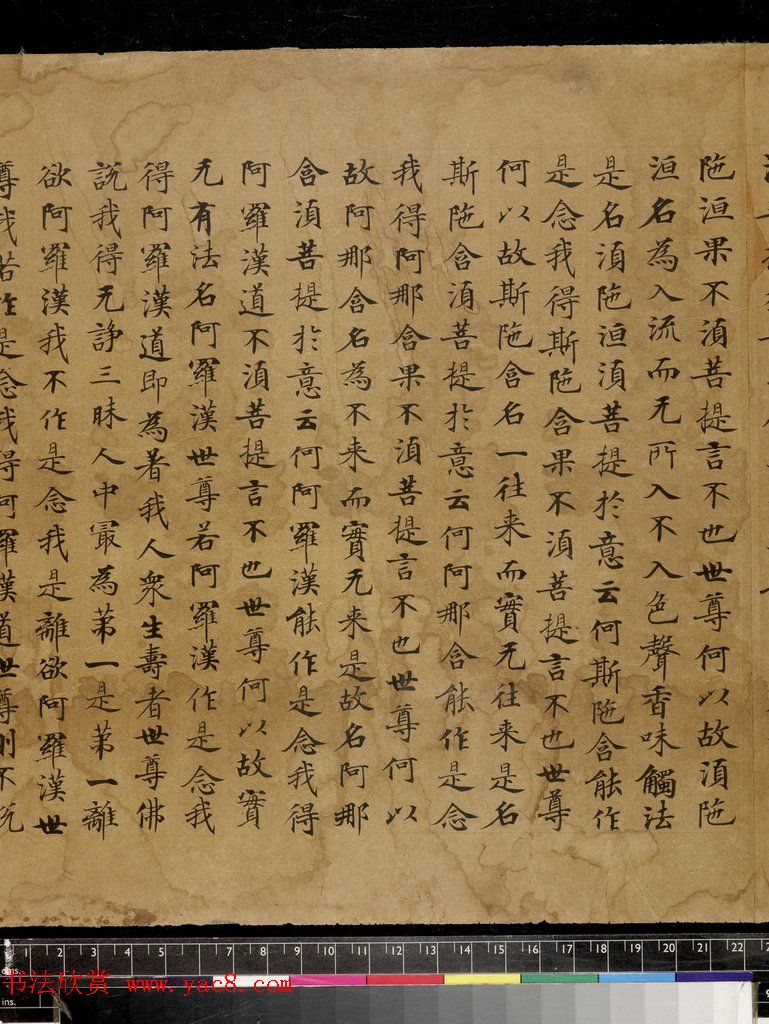 陁洹果不湏菩提言不也世尊何以故湏陁
洹名為入流而无所入不入色聲香味觸法
是名湏陁洹湏菩提於意云何斯陁含能作
是念我得斯陁含果不湏菩提言不也世尊
何以故斯陁含名一往来而實无往来是名
斯陁含湏菩提於意云何阿那含能作是念
我得阿那含果不湏菩提言不也世尊何以
故阿那含名為不来而實无来是故名阿那
含湏菩提於意云何阿羅漢能作是念我得
阿羅漢道不湏菩提言不也世尊何以故實
无有法名阿羅漢世尊若阿羅漢作是念我
得阿羅漢道即為著我人衆生壽者世尊佛
說我得无諍三昧人中冣為苐一是苐一離
欲阿羅漢我不作是念我是離欲阿羅漢世
尊我若作是念我得阿羅漢道世尊則不說
cms. 1 2 3 4 5 7 8 9 10 11 12 13 14 15 16 17 18 19 20 21 22
ins.
书法欣赏 www.yac8.com